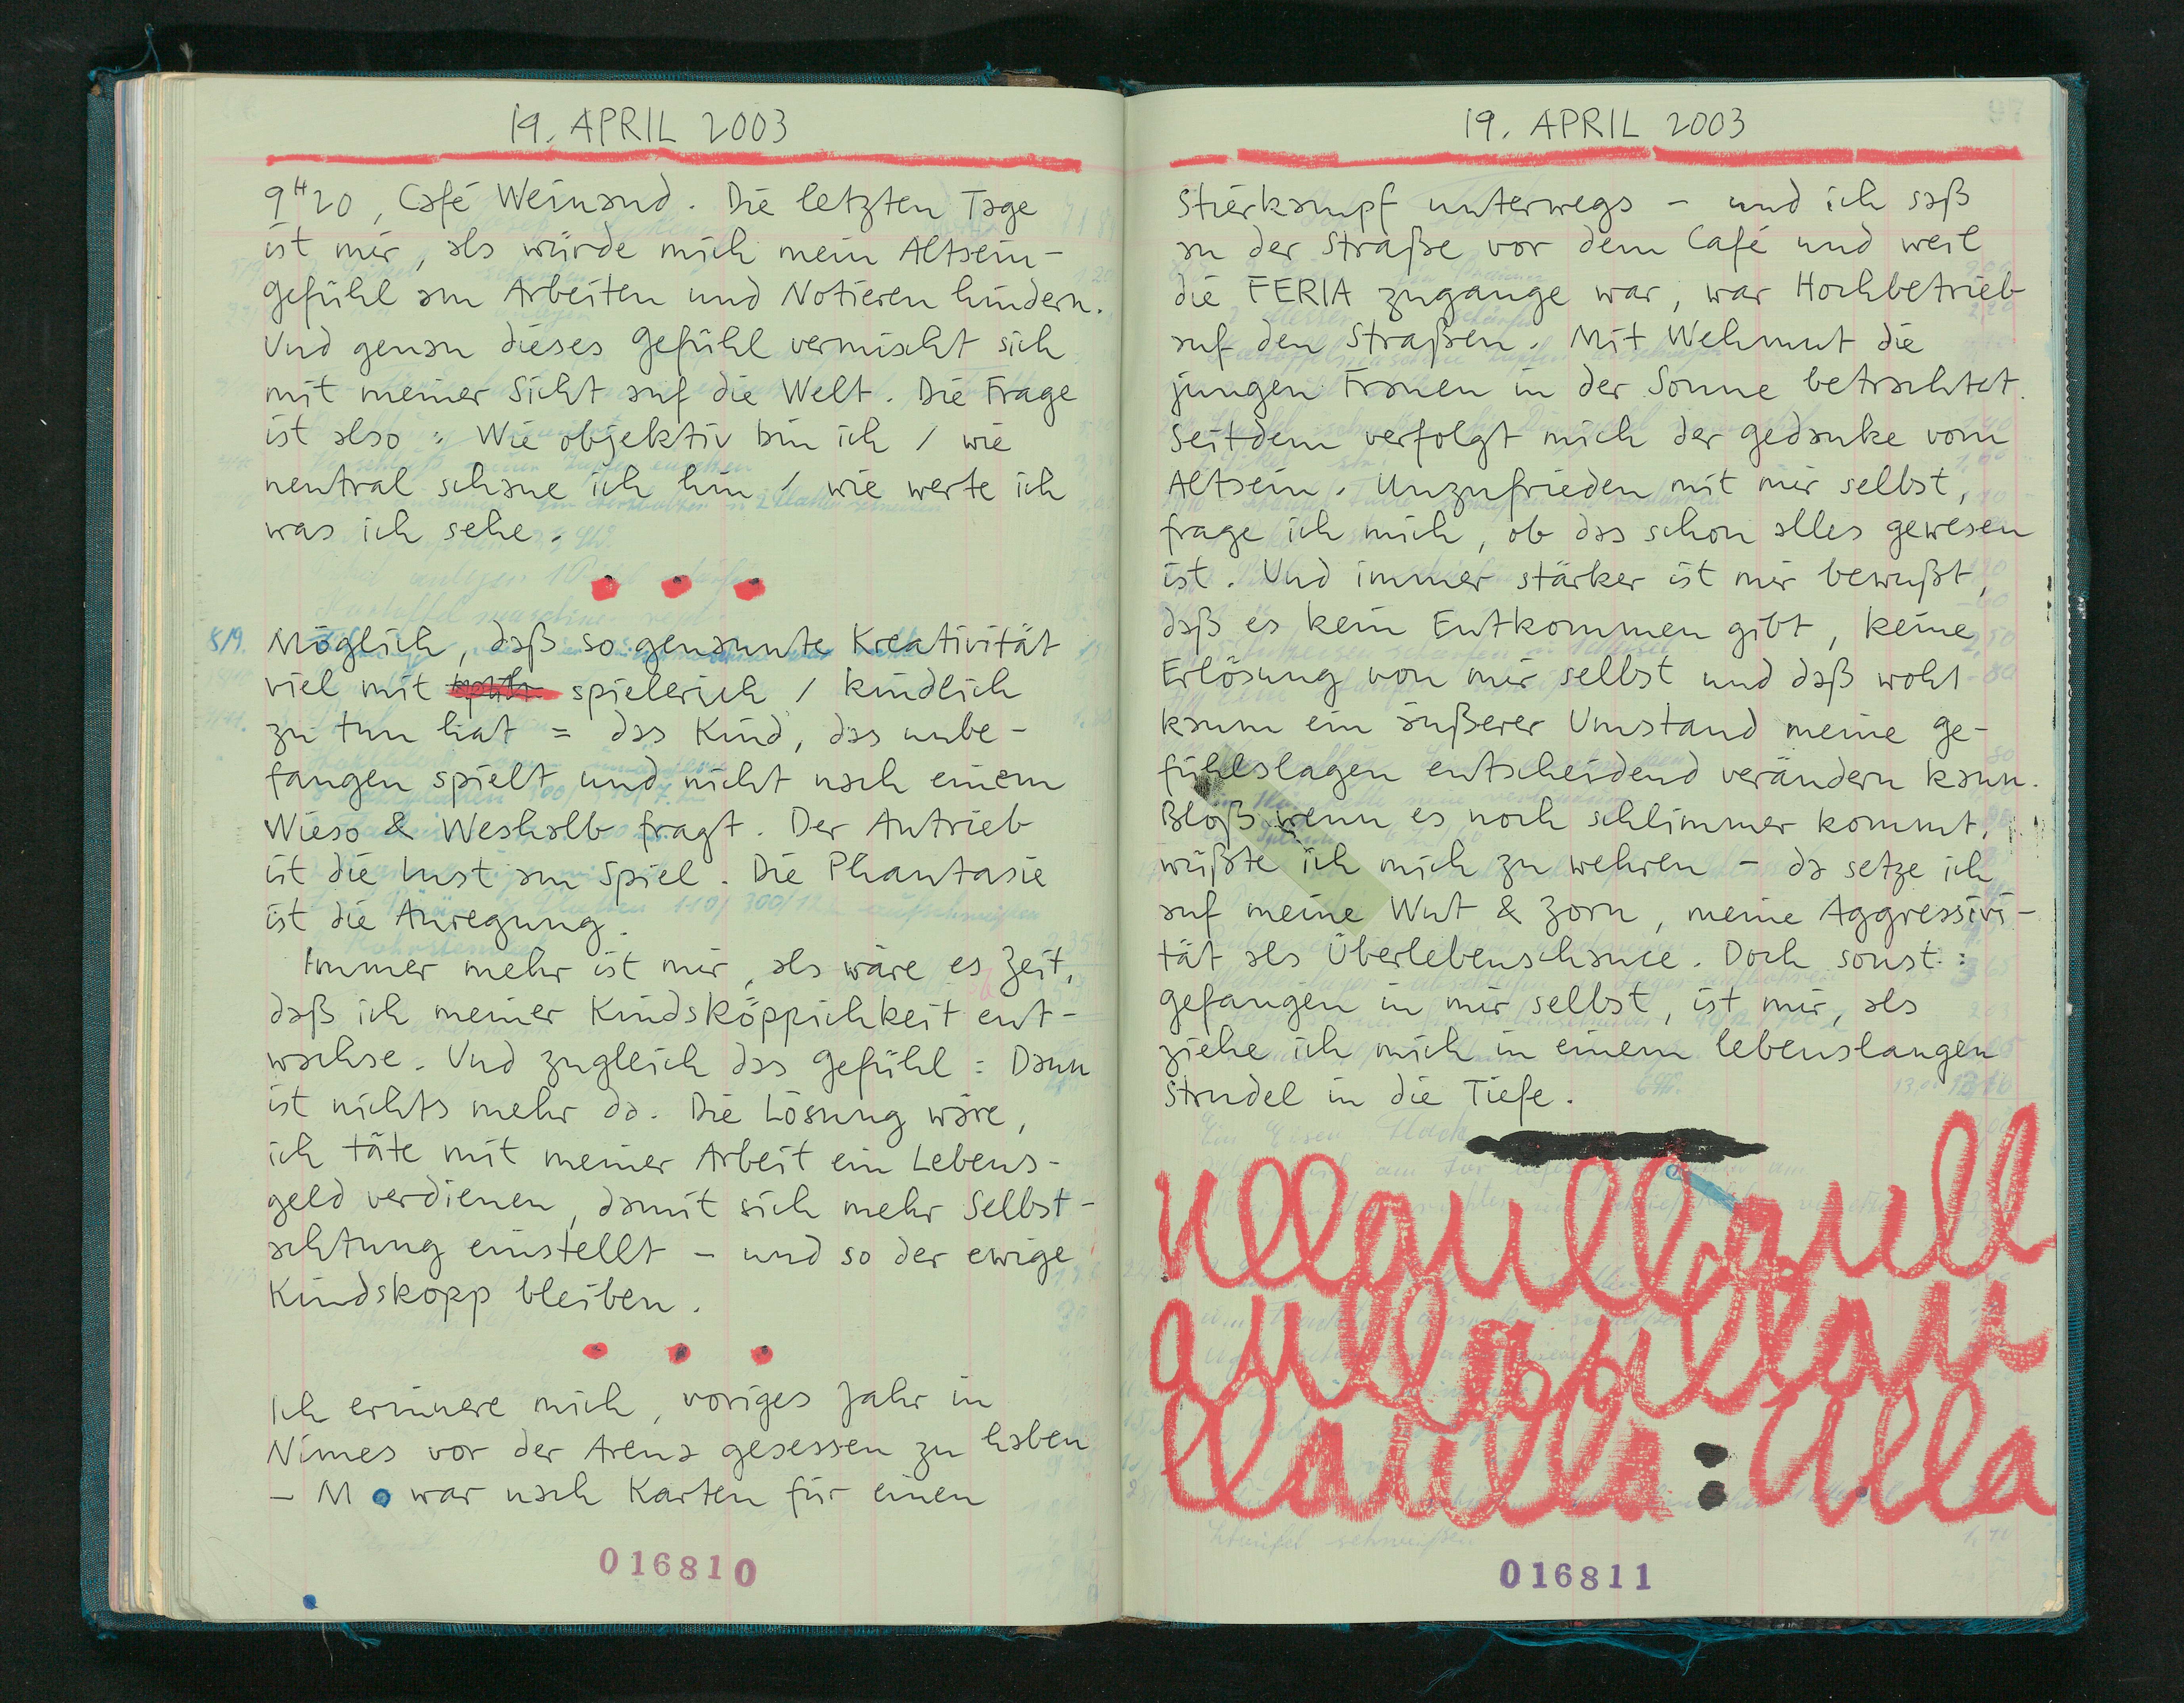 19. APRIL 2003
9H20, Café Weinand. Die letzten Tage
ist mir, als würde mich mein Altsein-
gefühl am Arbeiten und Notieren hindern.
Und genau dieses Gefühl vermischt sich
mit meiner Sicht auf die Welt. Die Frage
ist also: Wie objektiv bin ich / wie
neutral schaue ich hin / wie werte ich
was ich sehe.
Möglich, daß so genannte Kreativität
viel mit spielerich / kindlich
zu tun hat = das Kind, das unbe-
fangen spielt und nicht nach einem
Wieso & Weshalb fragt. Der Antrieb
ist die Lust am Spiel. Die Phantasie
ist die Anregung.
Immer mehr ist mir, als wäre es Zeit,
daß ich meiner Kindsköppichkeit ent-
wachse. Und zugleich das Gefühl: Dann
ist nichts mehr da. Die Lösung wäre,
ich täte mit meiner Arbeit ein Lebens-
geld verdienen, damit sich mehr Selbst-
achtung einstellt – und so der ewige
Kindskopp bleiben.
Ich erinnere mich, voriges Jahr in
Nimes vor der Arena gesessen zu haben
– M war nach Karten für einen
016810
19. APRIL 2003
Stierkampf unterwegs – und ich saß
an der Straße vor dem Café und weil
die FERIA zugange war, war Hochbetrieb
auf den Straßen. Mit Wehmut die
jungen Frauen in der Sonne betrachtet.
Seitdem verfolgt mich der Gedanke vom
Altsein. Unzufrieden mit mir selbst,
frage ich mich, ob das schon alles gewesen
ist. Und immer stärker ist mir bewußt,
daß es kein Entkommen gibt, keine
Erlösung von mir selbst und daß wohl
kaum ein äußerer Umstand meine Ge-
fühlslagen entscheidend verändern kann.
Bloß wenn es noch schlimmer kommt,
wüßte ich mich zu wehren – da setze ich
auf meine Wut & Zorn, meine Aggressivi-
tät als Überlebenschance. Doch sonst:
gefangen in mir selbst, ist mir, als
ziehe ich mich in einem lebenslangen
Strudel in die Tiefe.
ullaullaull
aullaullau
llaulla: Ulla
016811